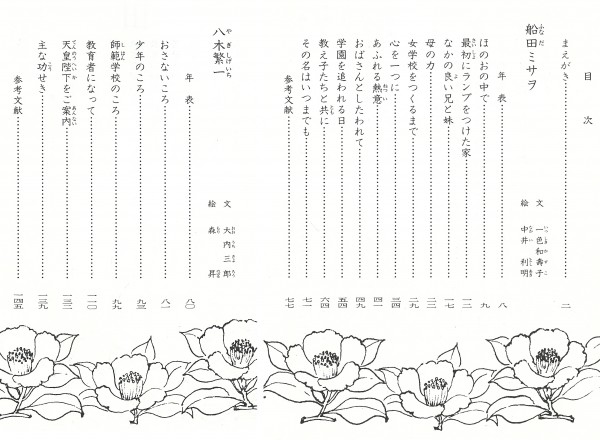 目次
まえがき 二
船田ミサヲ
ふなだ
文 一色和寿子
絵 中井利明
年表 八
ほのおの中で 九
最初にランプをつけた家 一三
なかの良い兄と妹 一七
母の力 二二
女学校をつくるまで 二九
心を一つに 三四
あふれる熱意 四一
おばさんとしたわれて 四九
学園を追われる日 五四
教え子たちと共に 六四
その名はいつまでも 七一
参考文献 七七
八木繁一
やぎしげいち
文 大内三郎
絵 森昇
年表 八〇
おさないころ 八一
少年のころ 九三
師範学校のころ 九九
教育者になって 一一〇
天皇陛下をご案内 一三二
主な功せき 一三九
参考文献 一四五